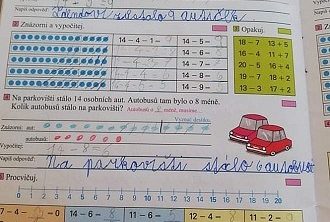 Napiš odpověď:
zůstalo 9 autíček
2 Znázorni a vypočítej.
3 Opakuj.
14 – 4 – 1 =
14 – 5 =
14 – 4 –
14 – 6 =
14 – 4 –
14 – 7 =
14 – 4 –
14 – 8 =
14 – 4 –
14 – 9 =
18 – 7 13 + 5
16 – 4 11 + 7
20 – 5 16 + 4
19 – 2 13 + 4
13 – 3 17 + 2
4 Na parkovišti stálo 14 osobních aut. Autobusů tam bylo o 8 méně.
Kolik autobusů stálo na parkovišti?
Vyznač desítku.
Znázorni: aut:
autobusů:
Vypočítej:
14 – 8 = 6
Napiš odpověď:
Na parkovišti stálo 6 autobusů
5 Procvičuj.
0 1 2 3 4 5 6 7 8 9 10 11 12 13 14 15 16 17 18 19 20
11 – 6 =
14 – 6 =
11 – 2 =